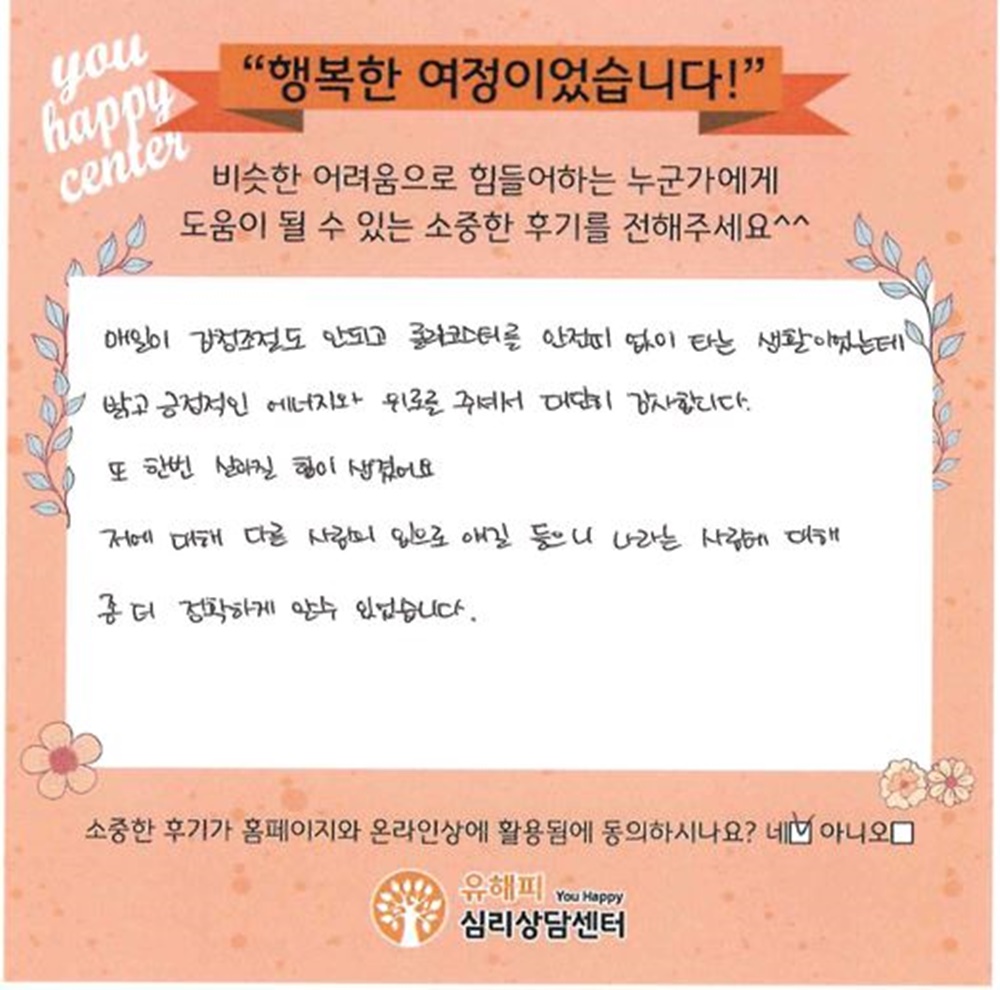 you
happy
center
“행복한 여정이었습니다!”
비슷한 어려움으로 힘들어하는 누군가에게
도움이 될 수 있는 소중한 후기를 전해주세요^^
매일이 감정조절도 안되고 롤러코스터를 안전띠 없이 타는 생활이었는데
밝고 긍정적인 에너지와 위로를 주셔서 대단히 감사합니다.
또 한번 살아질 힘이 생겼어요
저에 대해 다른 사람의 입으로 얘길 들으니 나라는 사람에 대해
좀 더 정확하게 알수 있었습니다.
소중한 후기가 홈페이지와 온라인상에 활용됨에 동의하시나요? 네☑ 아니오☐
유해피 You Happy
심리상담센터